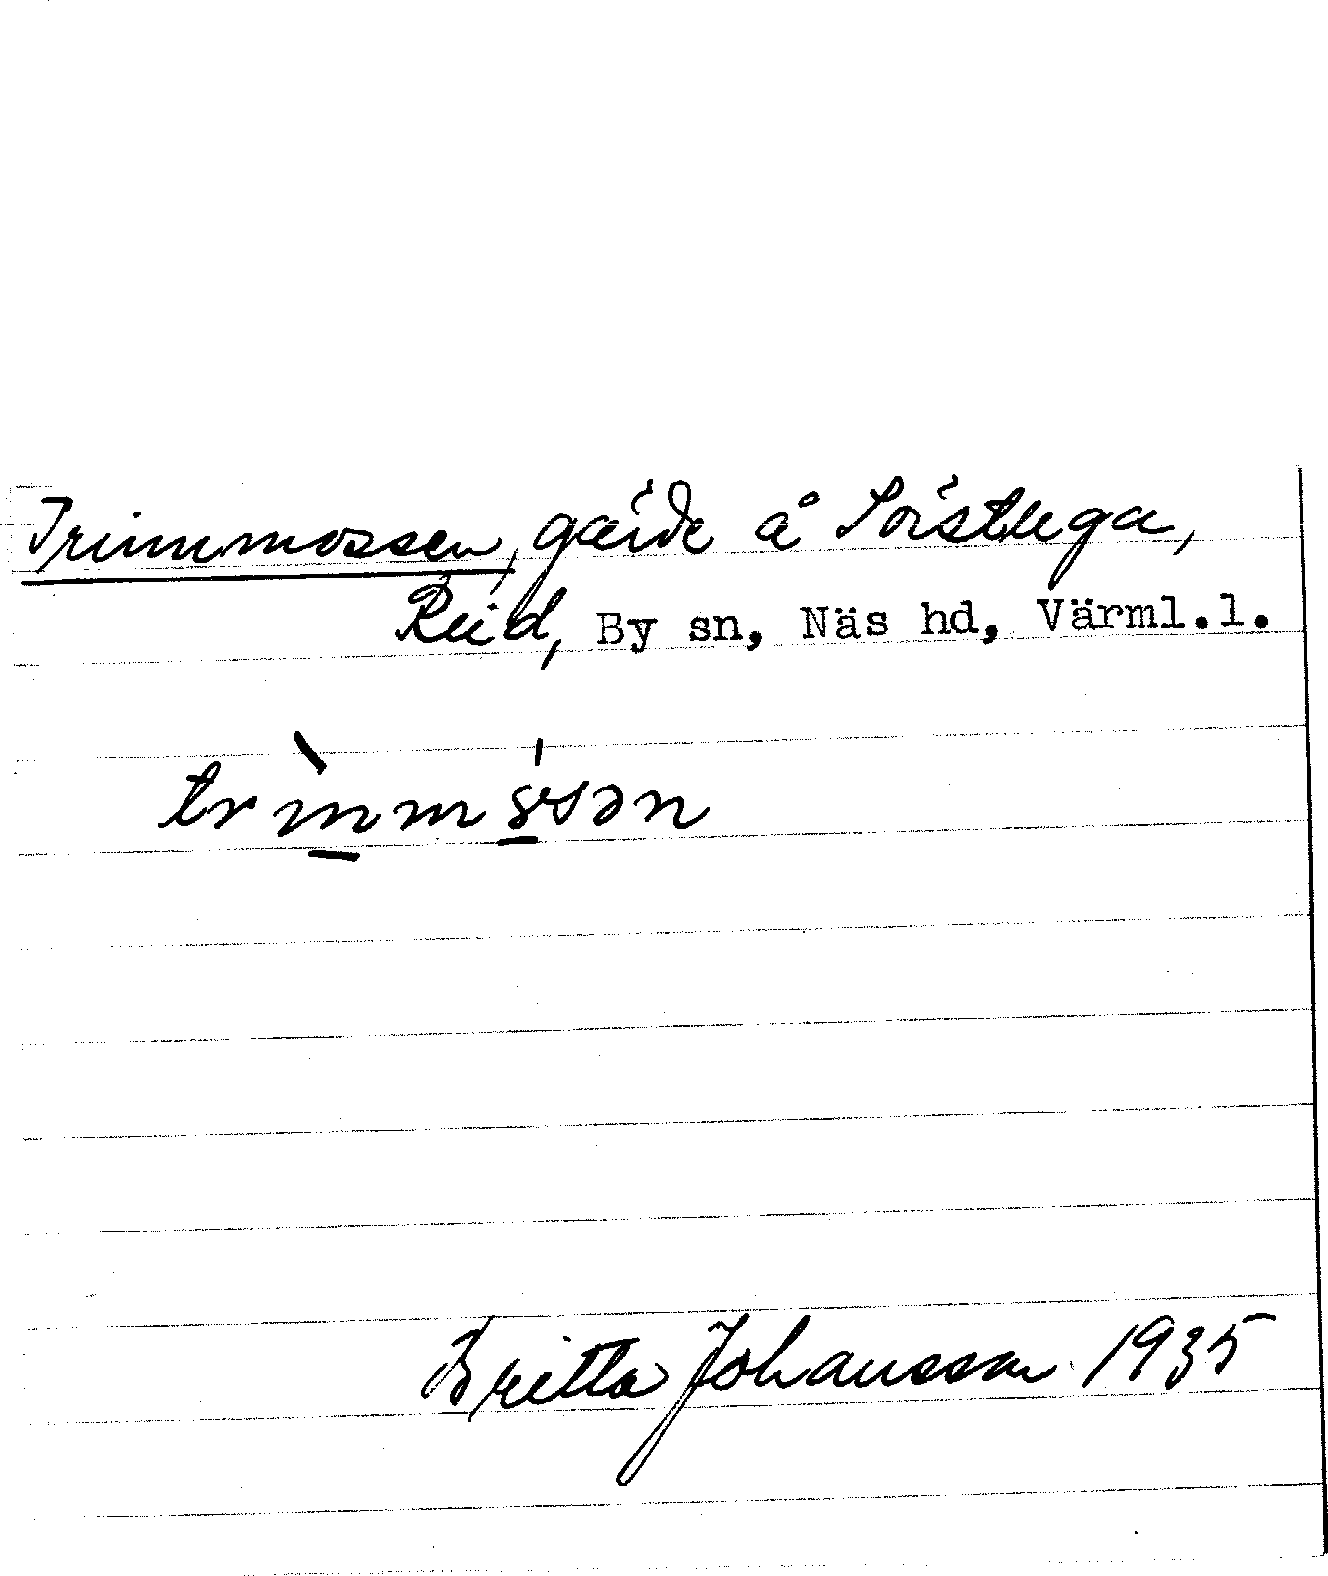 Trimmossen, gärde å Söstlega,
Reud, By sn, Näs hd, Värml.l.
Britta Johansson 1935